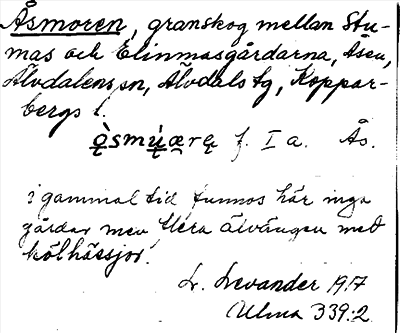 Åsmoren, granskog mellan Stu-
mas och Elinmasgårdarna, Åsen,
Älvdalens sn, Älvdals tg, Koppar-
bergs l.
f. I a. Ås.
i gammal tid funnos här inga
gårdar men flera älvängar med
hölhässjor.
L. Levander 1917
Ulma 339:2